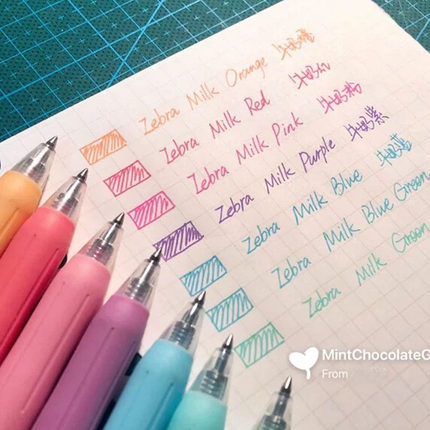 Zebra Milk Orange 牛奶橙
Zebra Milk Red 牛奶红
Zebra Milk Pink 牛奶粉
Zebra Milk Purple 牛奶紫
Zebra Milk Blue 牛奶蓝
Zebra Milk Blue Green
Zebra Milk Green
MintChocolateG
From